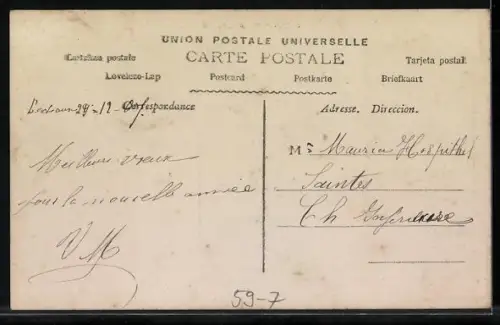 UNION POSTALE UNIVERSELLE
CARTE POSTALE
Cartolina postale
Tarjeta postal
Levelezo-Lap
Postcard
Postkarte
Briefkaart
29-12-
Correspondance
Adresse. Direccion.
Meilleurs vœux
pour la nouvelle année
VM
Mr Maurice Hospithel
Saintes
Ch Inférieure
59-7